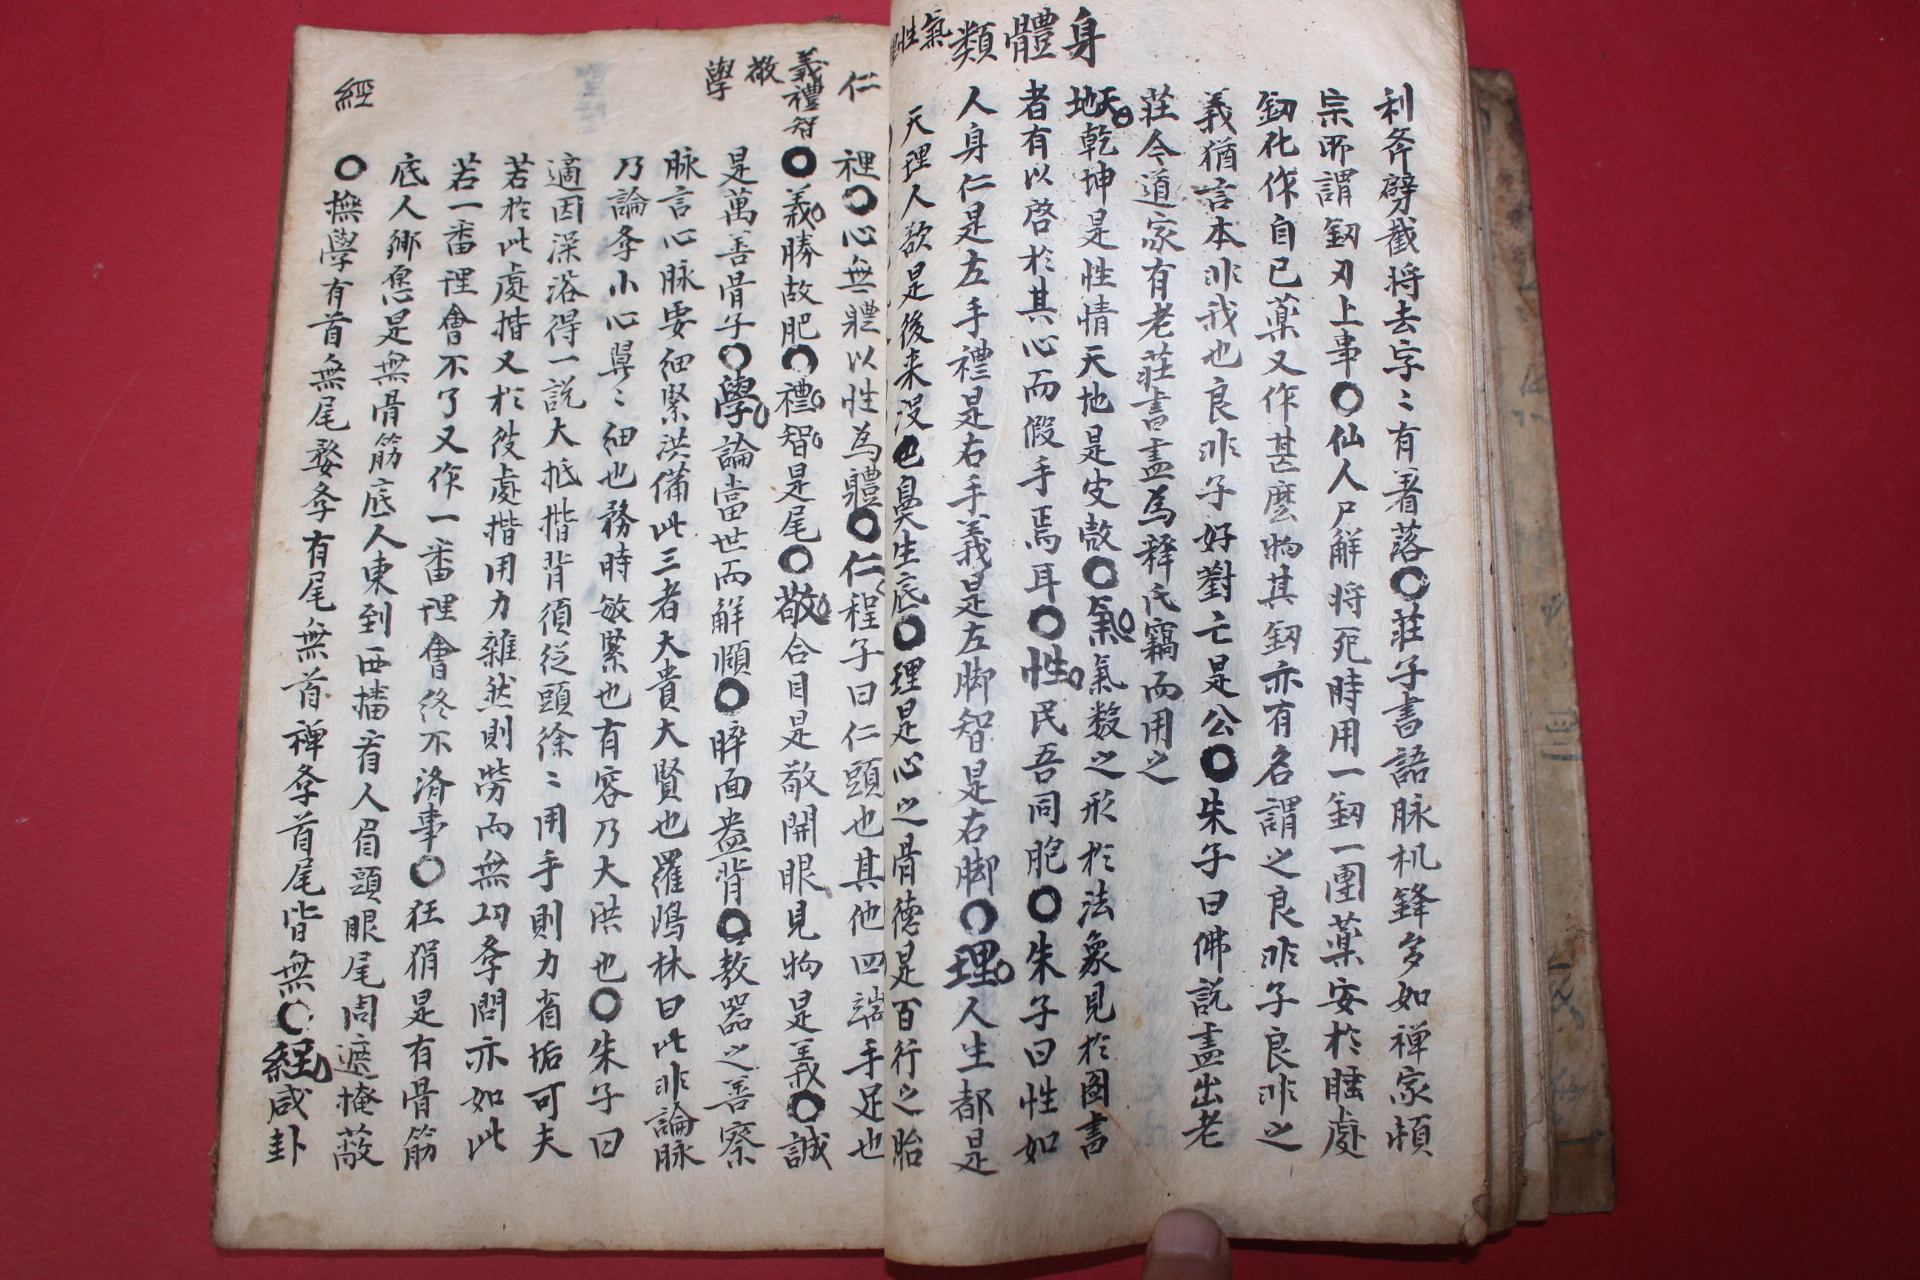 身體類
氣
性
利斧劈截將去字〻有着落○莊子書語脉机鋒多如禪家頓
宗所謂釰刃上事○仙人尸解將死時用一釰一團薬安於睡處
釰化作自己薬又作甚麽物其釰亦有名謂之良非子良非之
義猶言本非我也良非子好對亡是公○朱子曰佛說盡出老
莊今道家有老莊書盡為釋氏竊而用之
天地乾坤是性情天地是皮殼○氣氣数之形於法象見於圖書
者有以啓於其心而假手焉耳○性民吾同胞○朱子曰性如
人身仁是左手禮是右手義是左脚智是右脚○理人生都是
天理人欲是後来没巴鼻生底○理是心之骨德是百行之胎
仁
義禮智
敬
學
經
裡○心無軆以性為軆○仁程子曰仁頭也其他四端手足也
○義勝故肥○禮智是尾○敬合目是敬開眼見物是義○誠
是萬善骨子○學論當世而解頤○睟面盎背○教器之善察
脉言心脉要細緊洪備此三者大貴大賢也羅鴻林曰此非論脉
乃論孝小心翼〻細也務時敏緊也有容乃大洪也○朱子曰
適因澡浴得一說大抵揩背須從頭徐〻用手則力省垢可夫
若於此處揩又於彼處揩用力雖然則勞而無功孝問亦如此
若一番理會不了又作一番理會終不濟事○狂狷是有骨筋
底人鄉愿是無骨筋底人東到西擂看人眉頭眼尾周遮掩蔽
○撫學有首無尾婺孝有尾無首禪孝首尾皆無○經咸卦